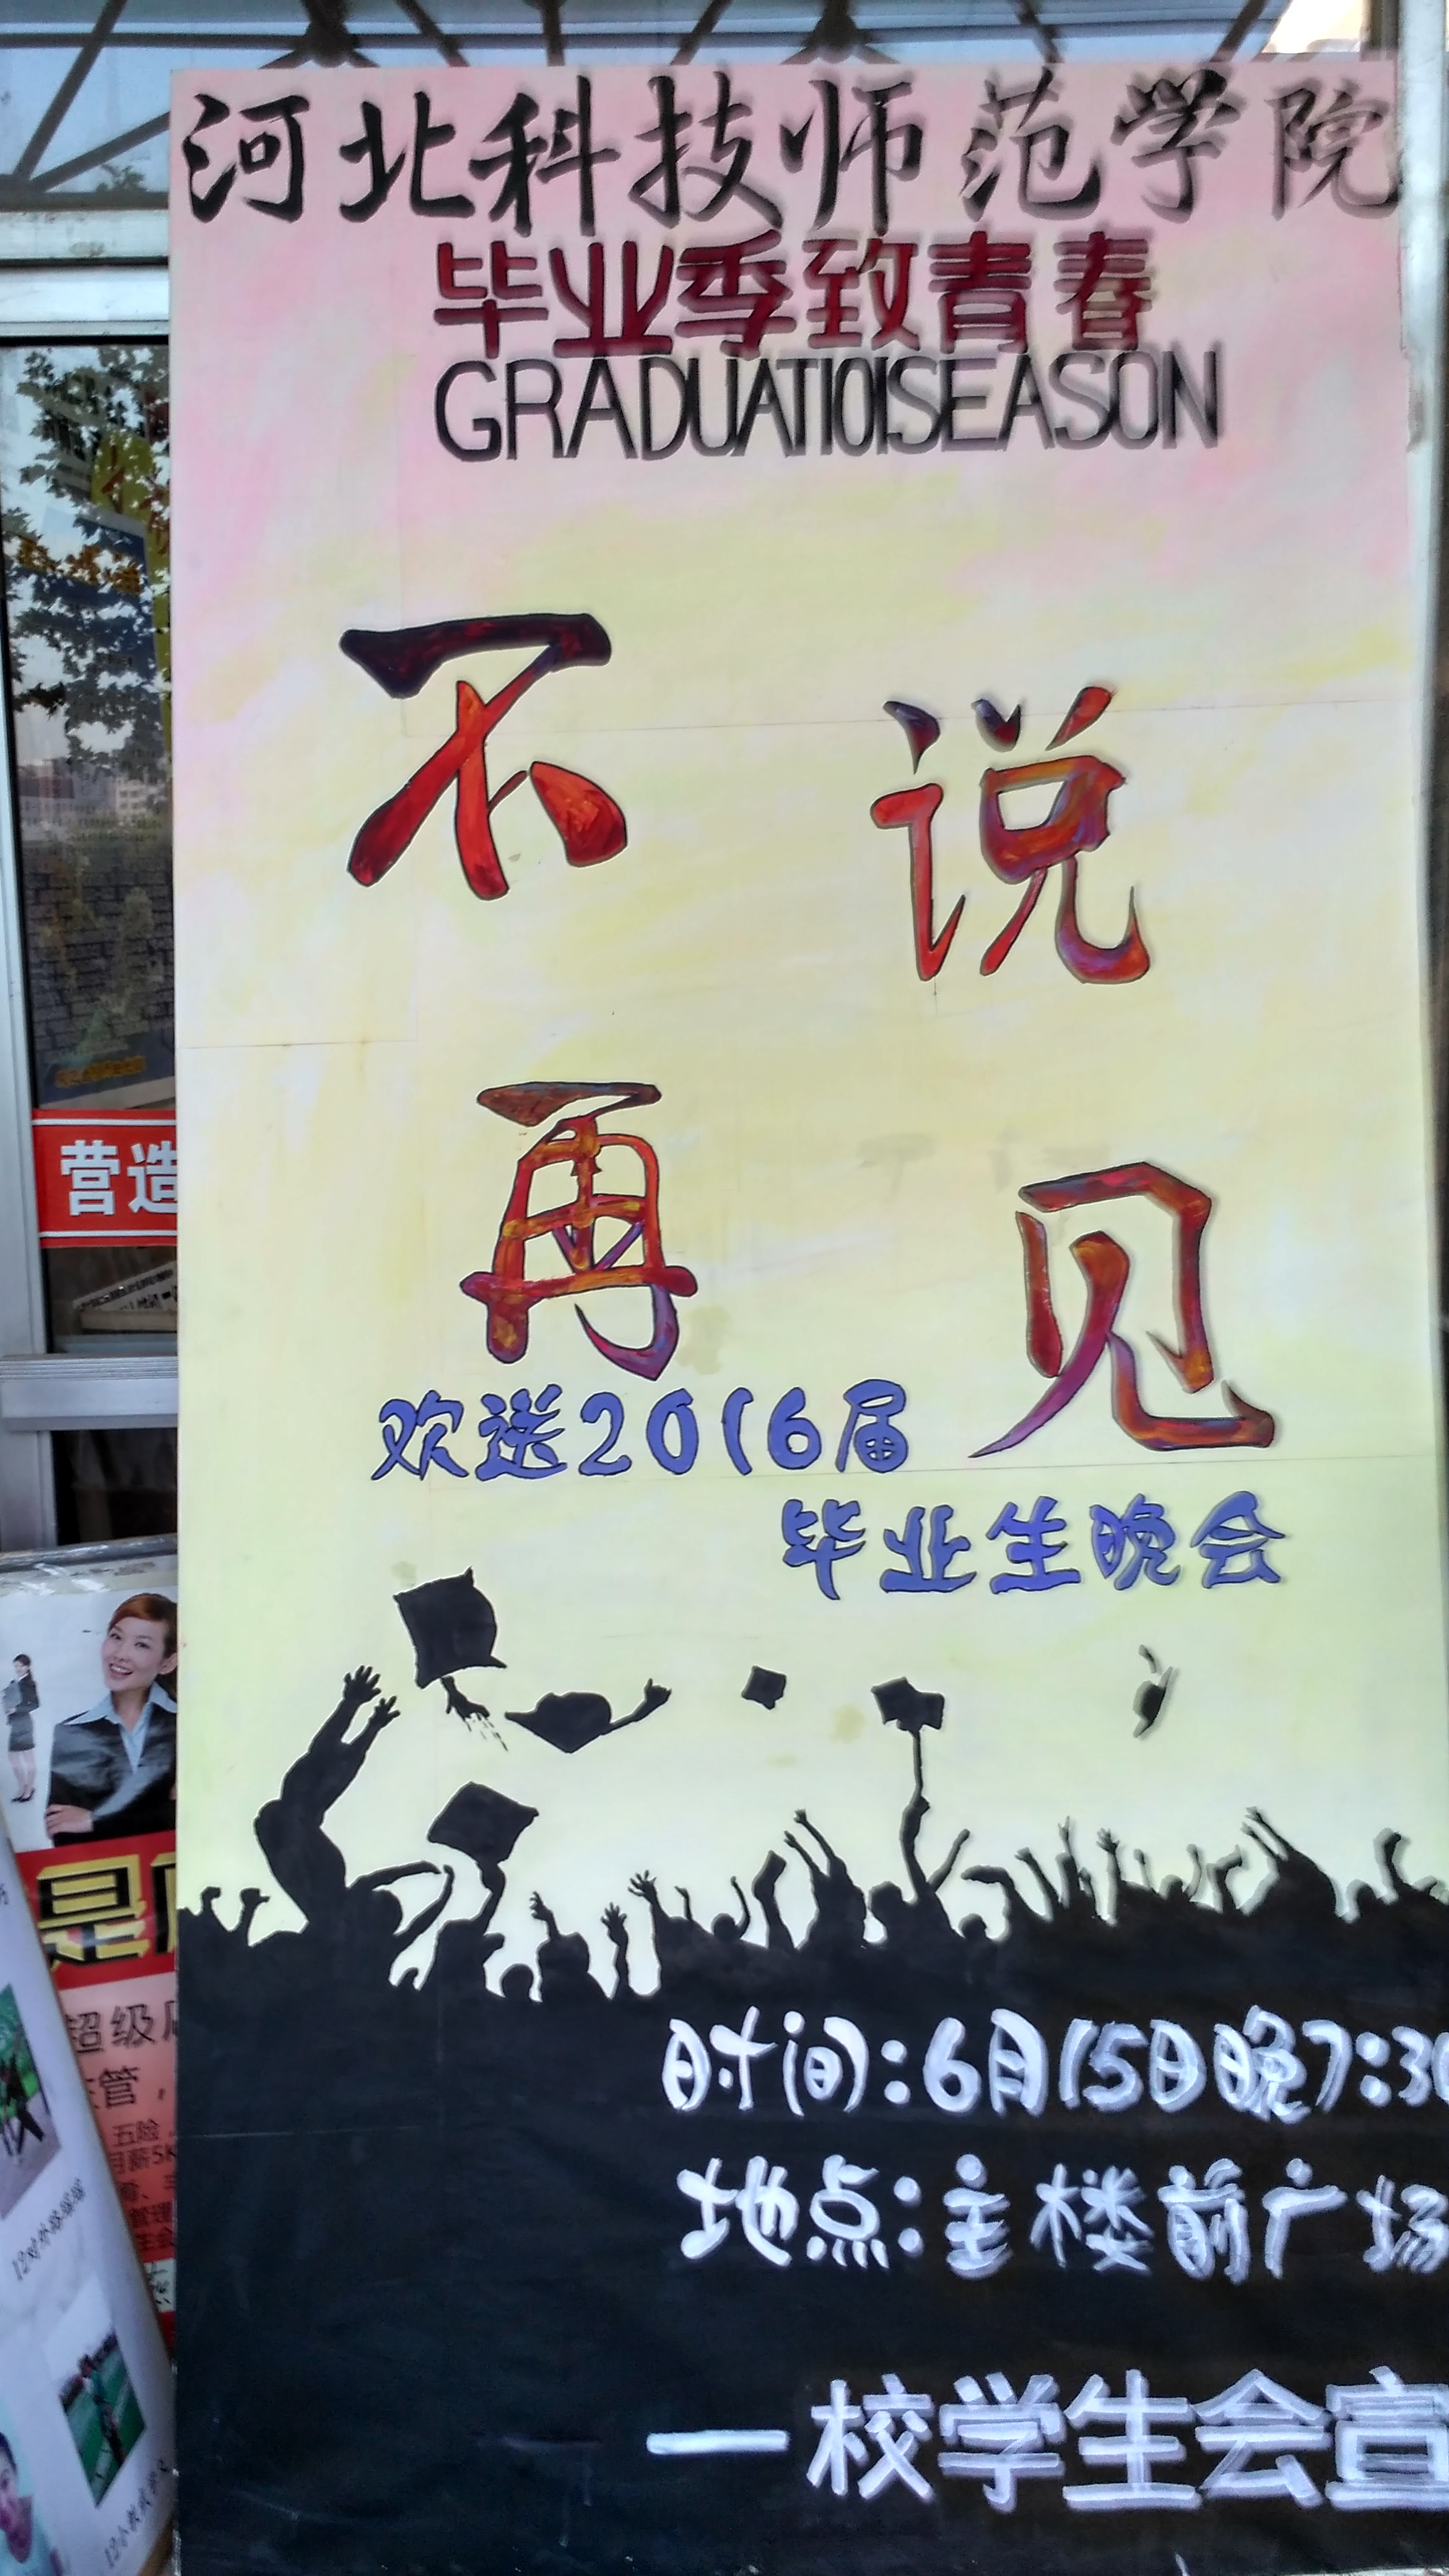 河北科技师范学院
毕业季致青春
GRADUATIOISEASON
不说
再见
欢送2016届
毕业生晚会
时间:6月15日晚7:30
地点:主楼前广场
一校学生会宣
营造
是
超级
管,
五险
月薪5K
管理